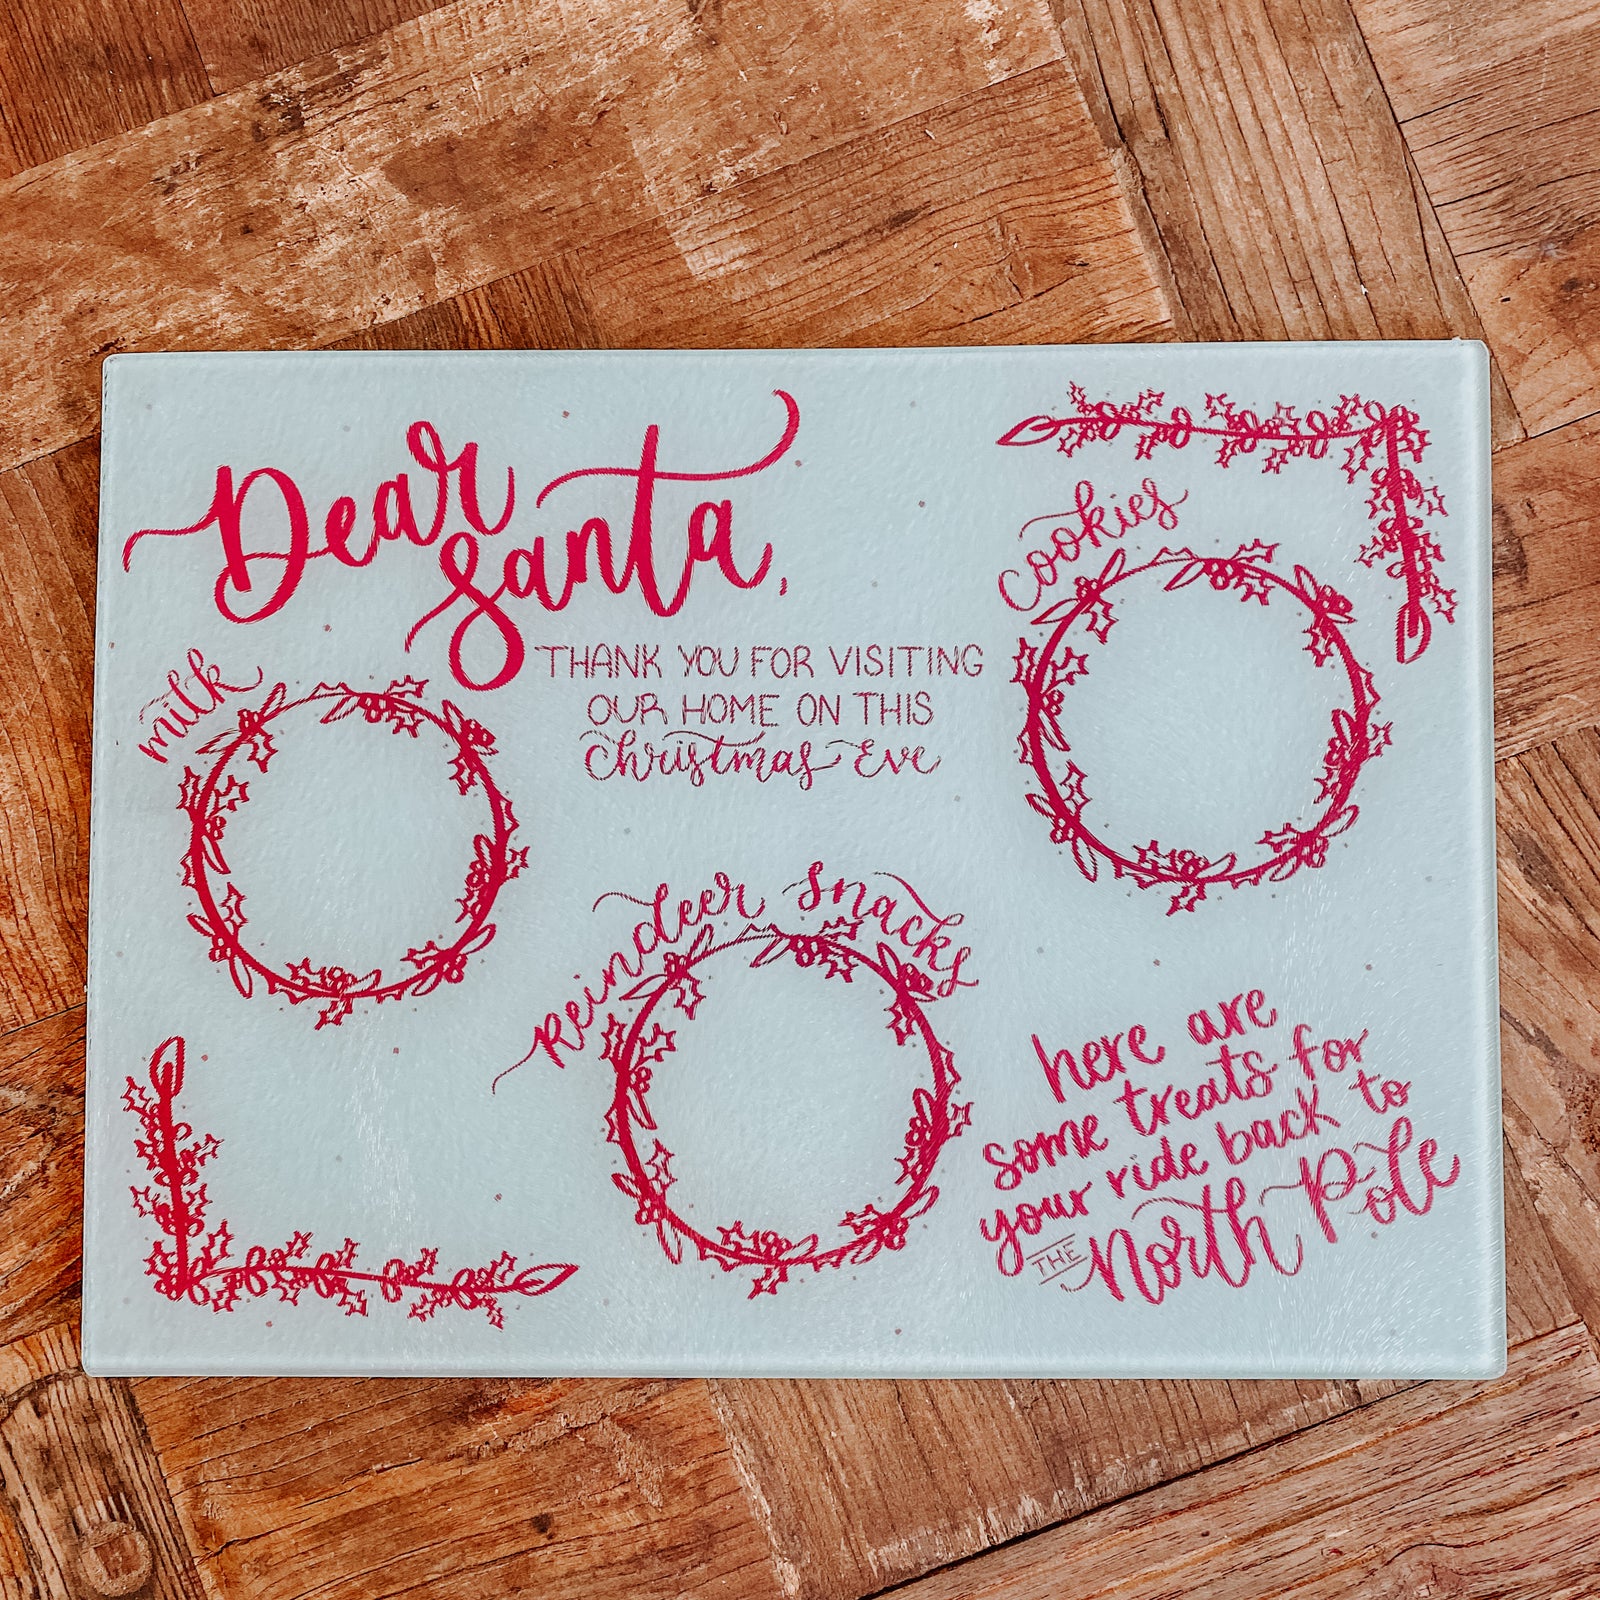 Dear
Santa,
THANK YOU FOR VISITING
OUR HOME ON THIS
Christmas Eve
milk
cookies
Reindeer Snacks
here are
some treats for
your ride back to
THE North Pole